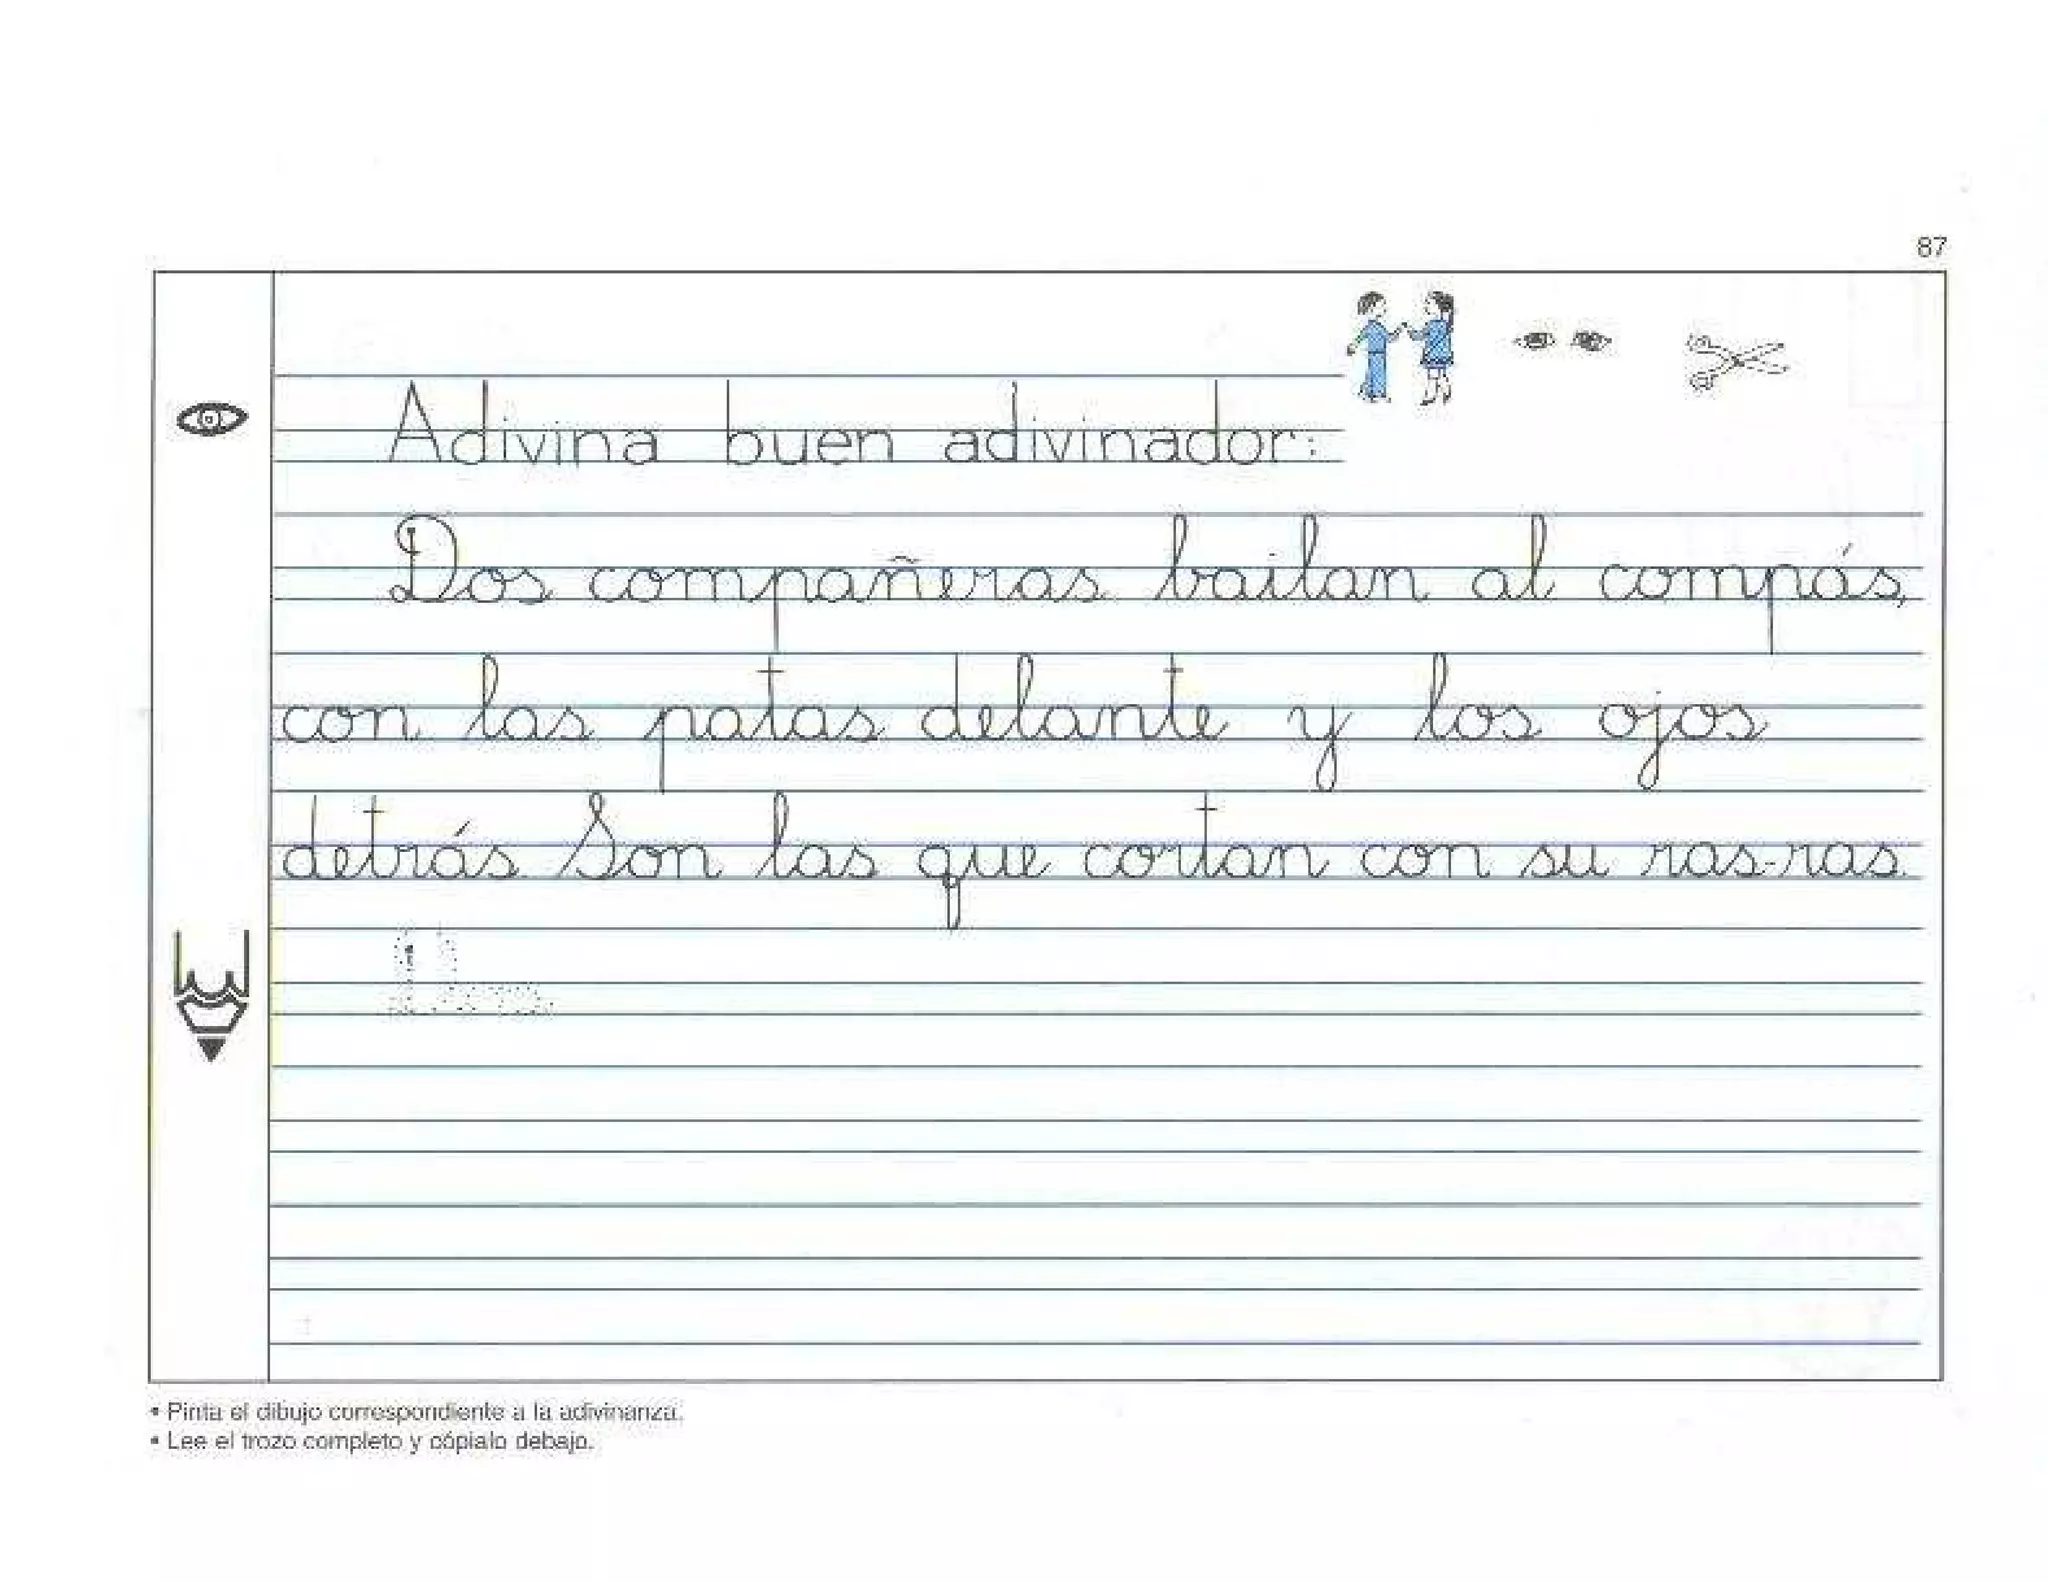 87
Adivina buen adivinador:
Dos compañeras bailan al compás,
con las patas delante y los ojos
detrás Son las que cortan con su ras-ras.
• Pinta el dibujo correspondiente a la adivinanza.
• Lee el trozo completo y cópialo debajo.